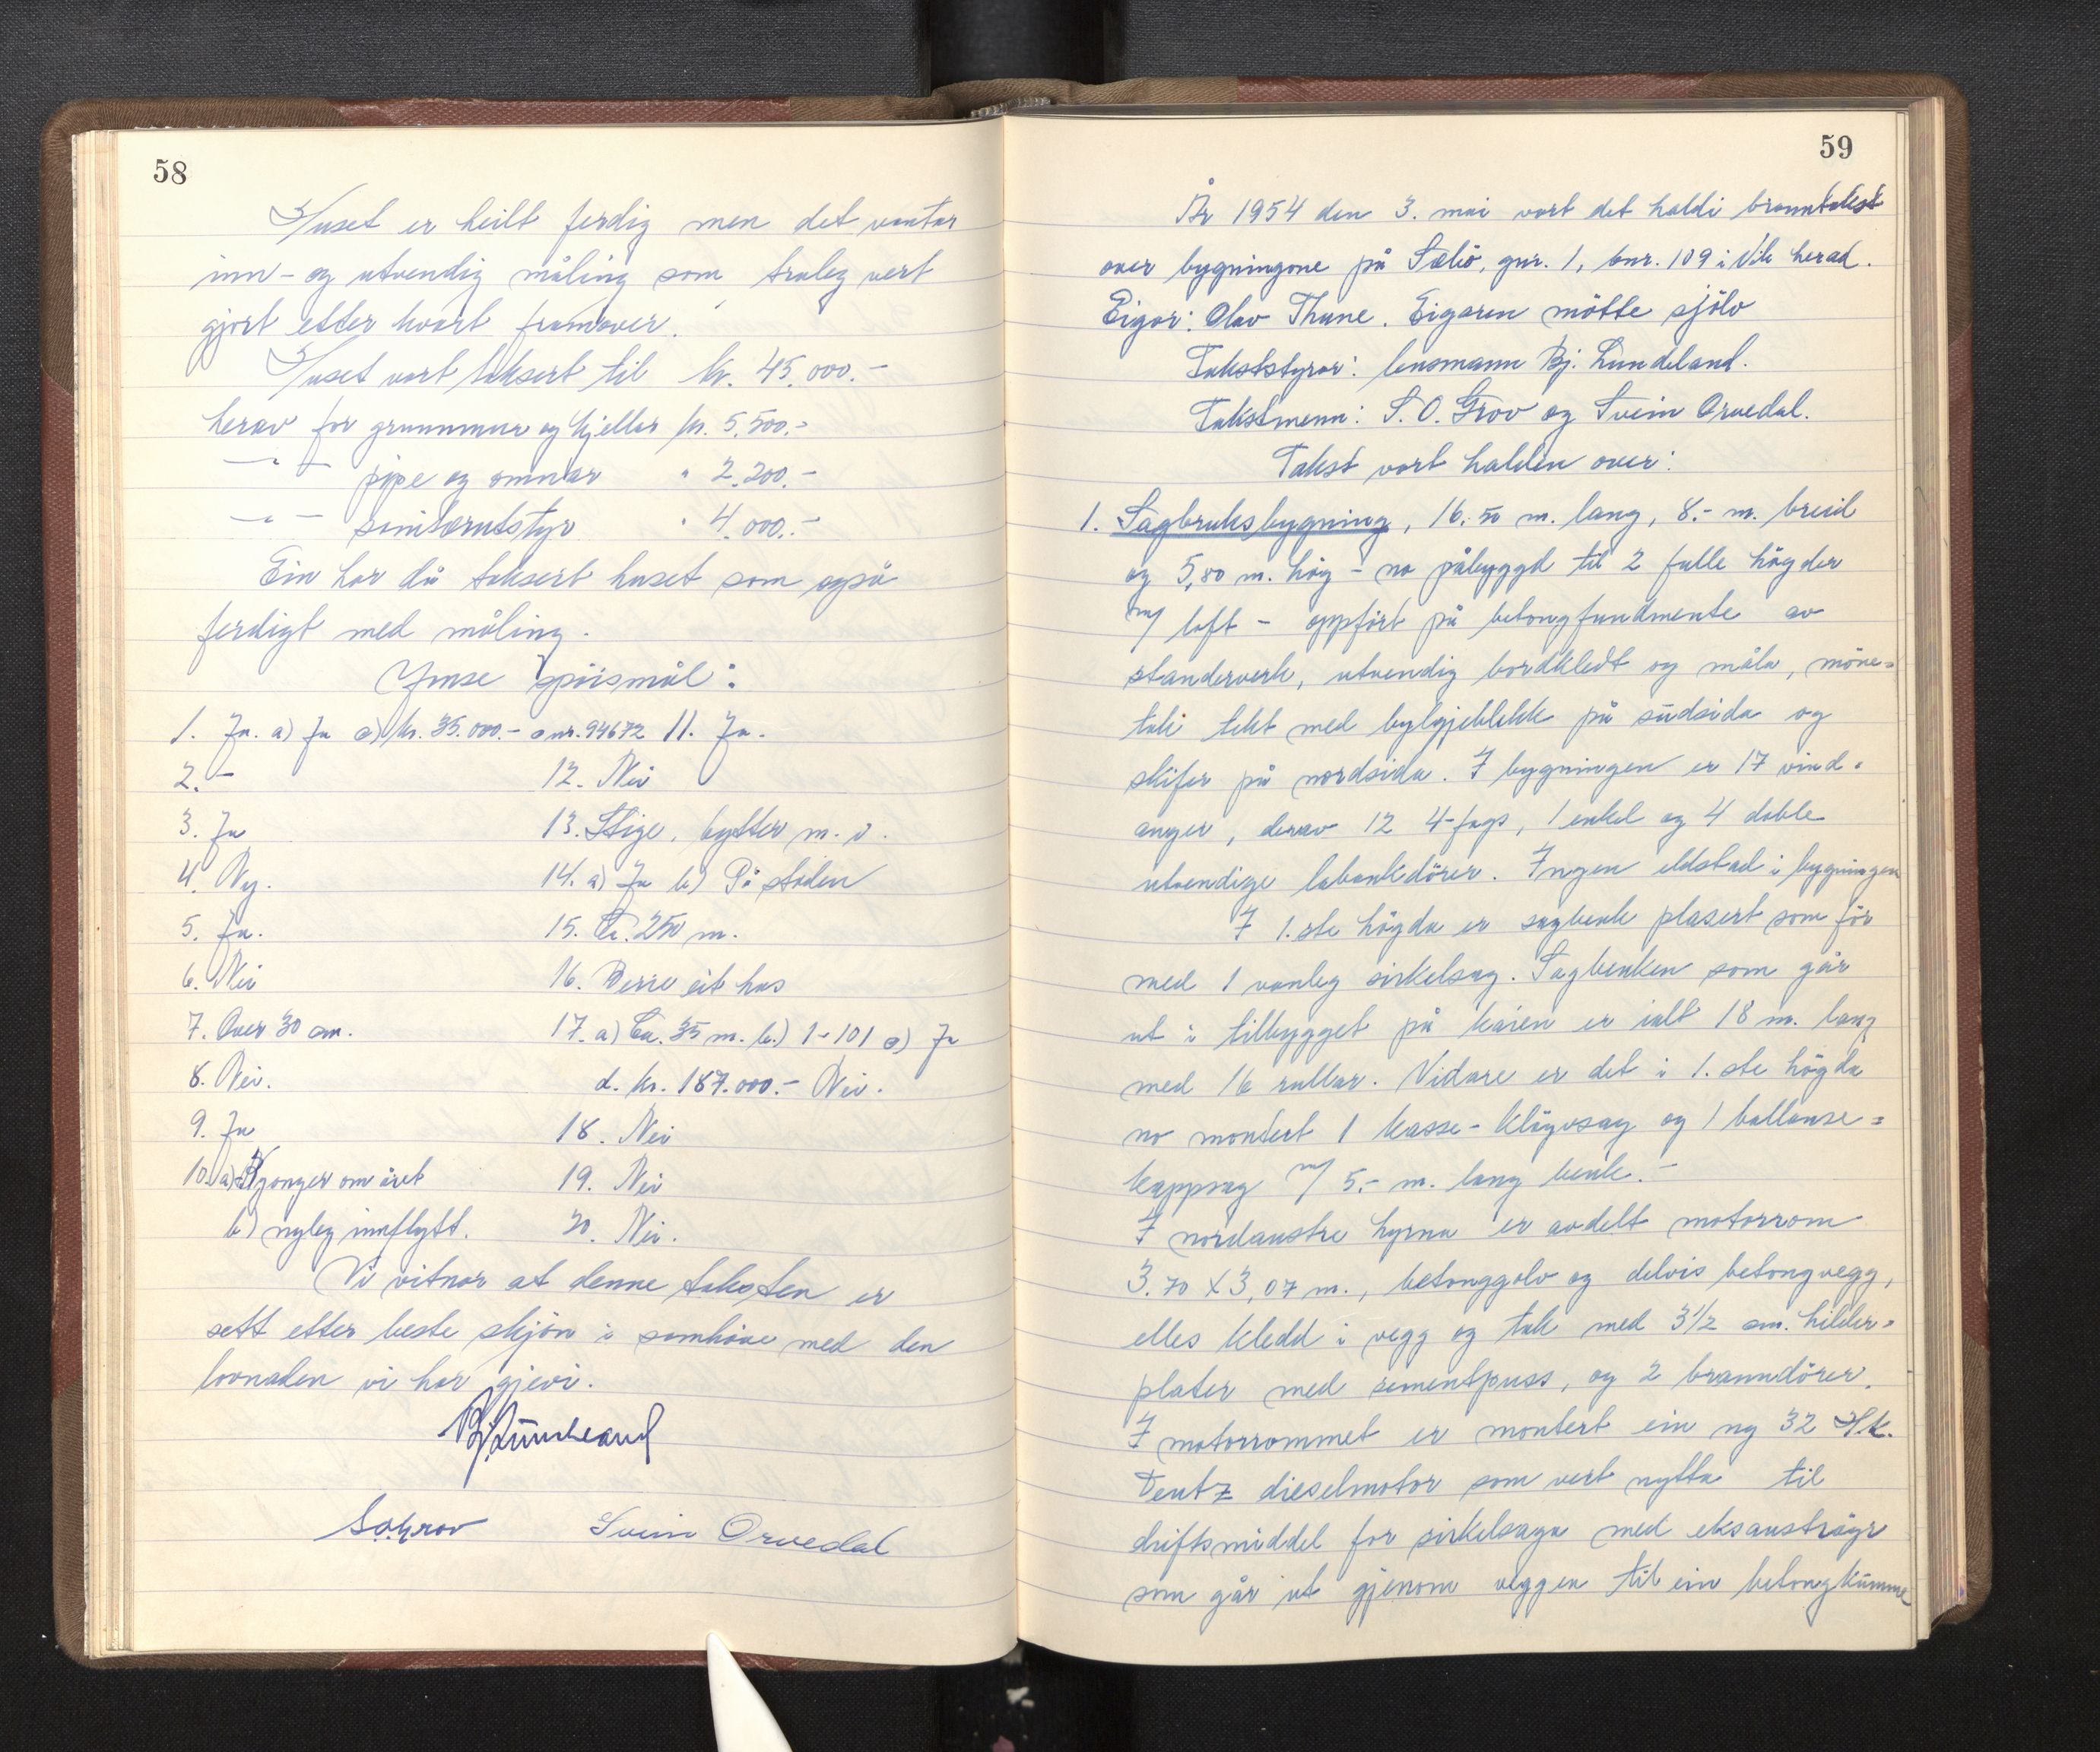 58
Huset er heilt ferdig men det vantar
inn- og utvendig måling som truleg vert
gjort etter kvart framover.
Huset vart taksert til kr. 45.000.-
herav for grunnmur og kjellar kr. 5.500.-
-"- - pipe og omnar " 2.200.-
-"- - sanitærutstyr " 4.000.-
Ein har då taksert huset som også
ferdigt med måling.
Ymse spörsmål:
1. Ja. a) Ja c) kr. 35.000.- anr. 94672 11. Ja.
2. - 12. Nei
3. Ja 13. Stige, bytter m. v.
4. Ny. 14. a) Ja b) På staden
5. Ja. 15. Ca. 250 m.
6. Nei 16. Berre eit hus
7. Over 30 cm. 17. a) Ca. 35 m. b.) 1-101 c) Ja
8. Nei. d. kr. 187.000.- Nei.
9. Ja 18. Nei
10. a) gonger om året 19. Nei
b) nyleg innflytt. 20. Nei.
Vi vitnar at denne taksten er
sett etter beste skjön i samhöve med den
lovnaden vi har gjevi.
Bj. Lundeland
S.O. Grov Svein Orvedal
59
År 1954 den 3. mai vart det haldi branntakst
over bygningane på Sæbö, gnr. 1, bnr. 109 i Vik herad.
Eigar: Olav Thune. Eigaren mötte sjölv
Takststyrar: lensmann Bj. Lundeland.
Takstmenn: S. O. Grov og Svein Orvedal.
Takst vart halden over:
1. Sagbruksbygning, 16.50 m. lang, 8.- m. breid
og 5,80 m. höy - no påbyggd til 2 fulle högder
m/ loft - oppfört på betongfundmente av
standerverk, utvendig bordkledt og måla, möne=
tak tekt med bylgjeblekk på südsida og
skifer på nordsida. I bygningen er 17 vind=
auger, derav 12 4-fags, 1 enkel og 4 doble
utvendige labankdörer. Ingen eldstad i bygningen
I 1.ste högda er sagbenk plasert som för
med 1 vanleg sirkelsag. Sagbenken som går
ut i tilbygget på kaien er ialt 18 m. lang
med 16 rullar. Vidare er det i 1. ste högda
no montert 1 kasse-klöyvsag og 1 ballanse=
kappsag m/ 5.- m. lang benk.-
I nordaustre hyrna er avdelt motorrom
3.70 x 3,07 m., betonggolv og delvis betongvegg,
elles kledd i vegg og tak med 3½ cm. hilder=
plater med sementpuss, og 2 branndörer.
I motorrommet er montert ein ny 32 Hk.
Deutz dieselmotor som vert nytta til
driftsmiddel for sirkelsaga med eksauströyr
som går ut gjenom veggen til ein betongkümme